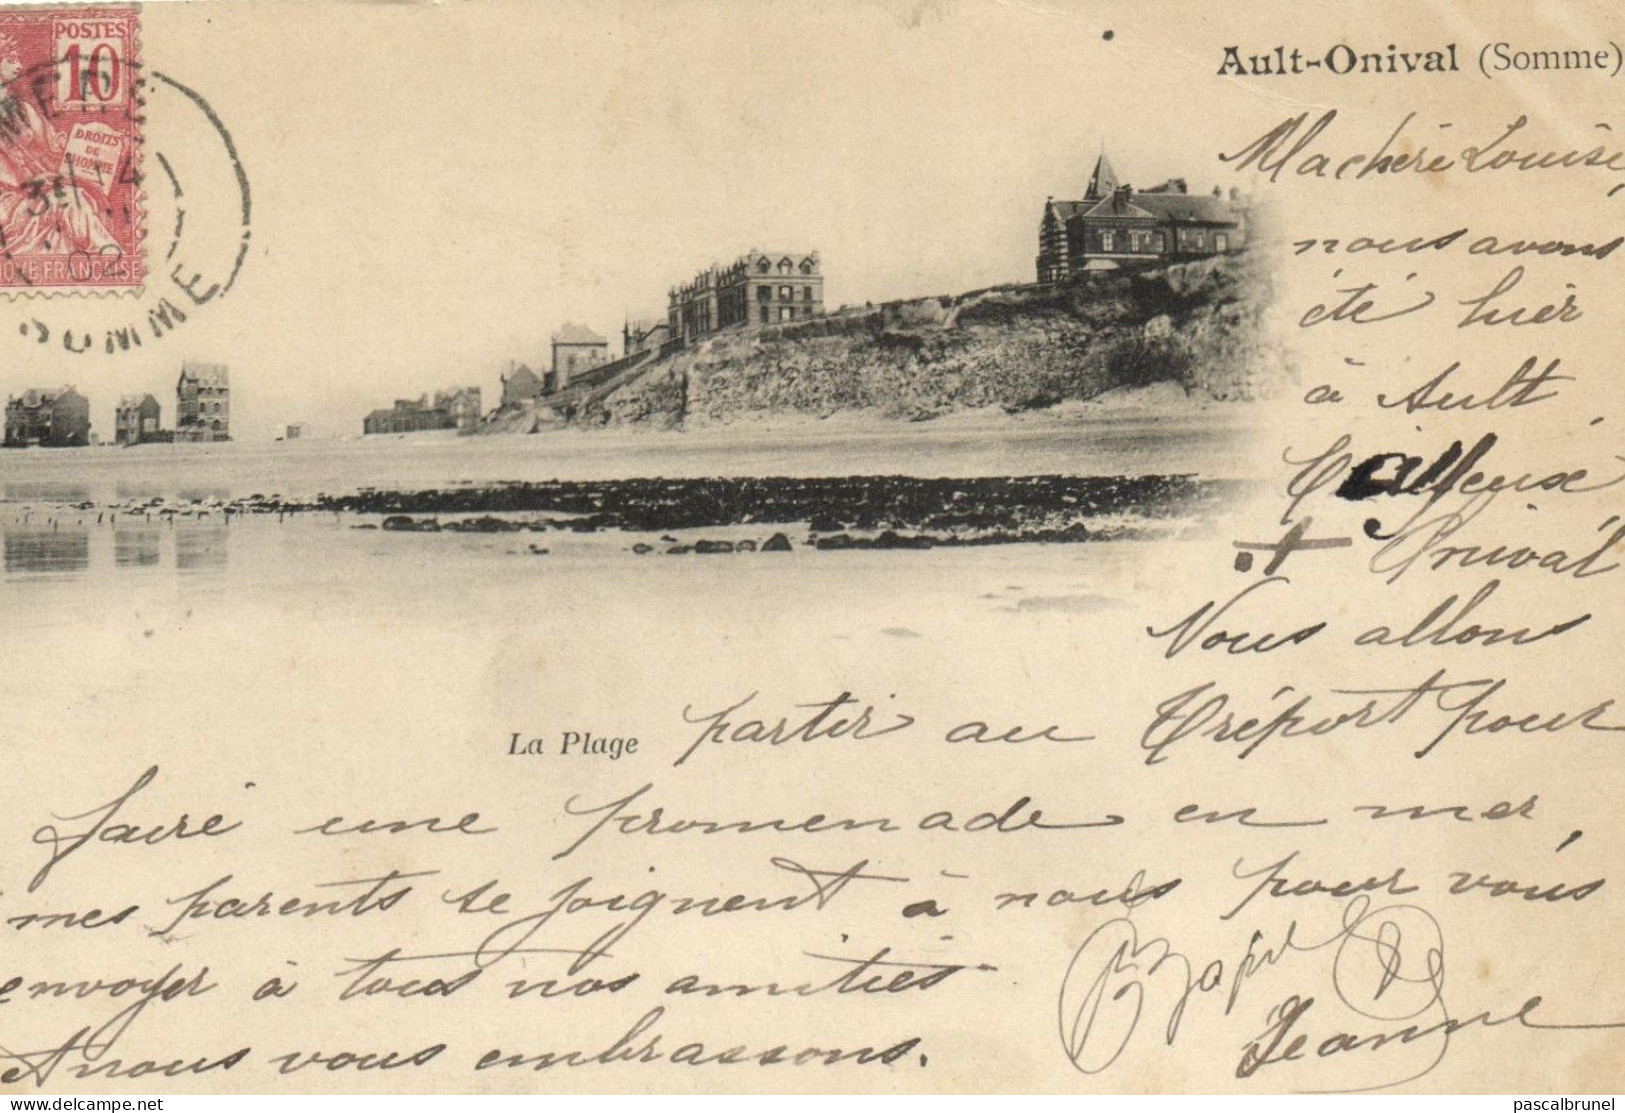 POSTES
10
DROITS
DE
L'HOMME
FRANÇAISE
3E
14
02
SOMME
Ault-Onival (Somme)
Ma chère Louise,
nous avons
été hier
à Ault
Onival
Nous allons
La Plage
partir au Tréport pour
faire une promenade en mer,
mes parents se joignent à nous pour vous
envoyer à tous nos amitiés
et nous vous embrassons.
Jeanne
pascalbrunel